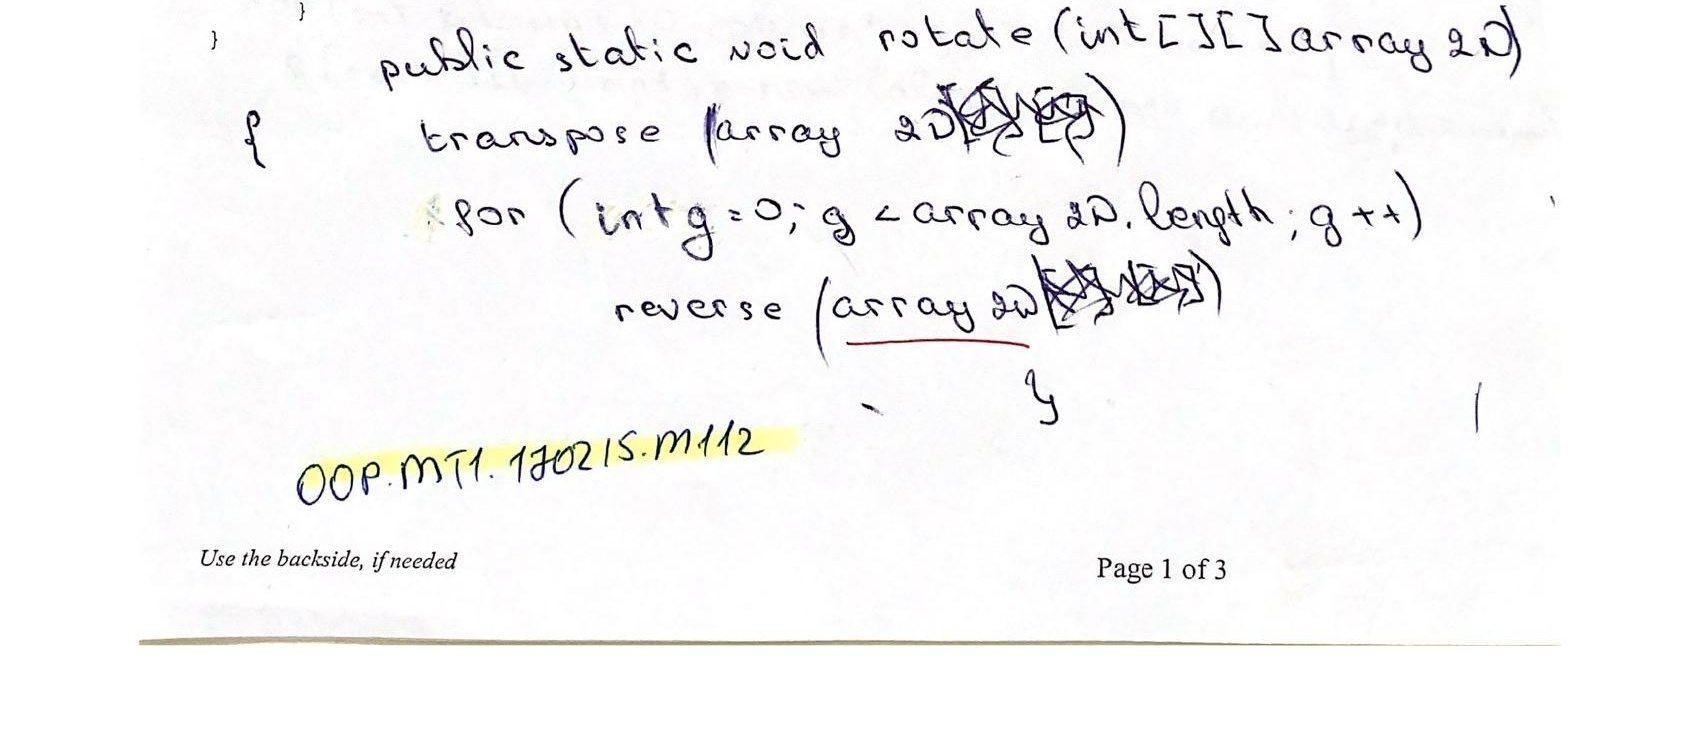 }
}
public static void rotate (int[][] array 2D)
{ transpose (array 2D)
for (int g = 0; g < array 2D. length; g ++)
reverse (array 2D)
}
OOP.MT1.170215.M112
Use the backside, if needed Page 1 of 3